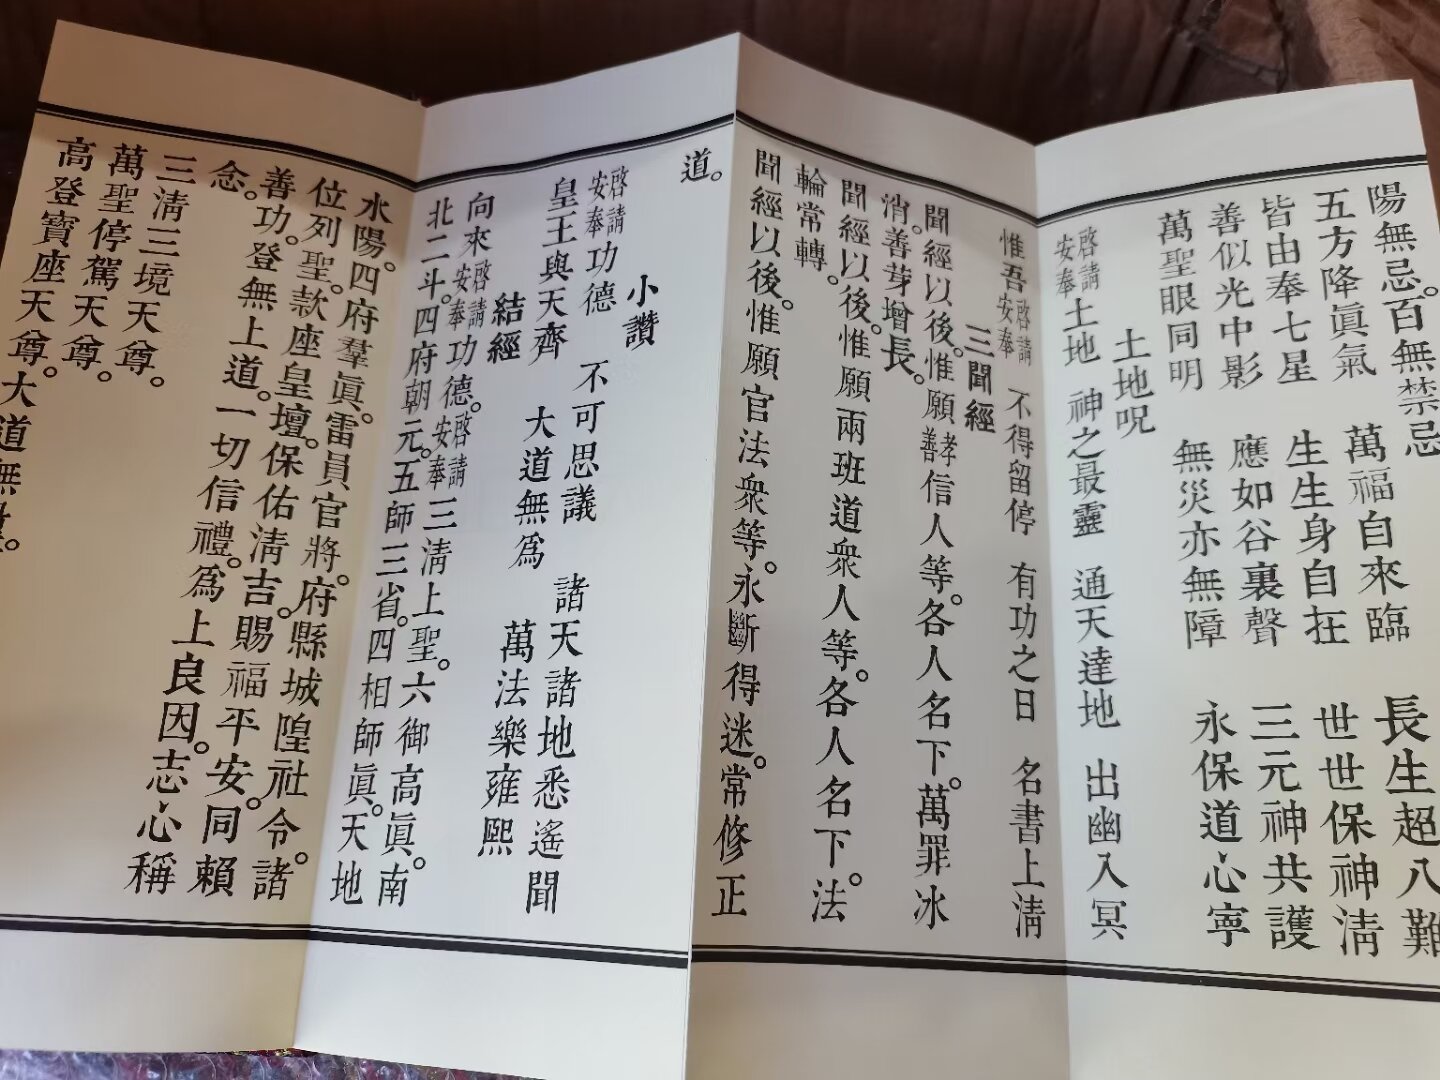 陽無忌。百無禁忌 長生超八難
五方降眞氣 萬福自來臨 世世保神淸
皆由奉七星 生生身自在 三元神共護
善似光中影 應如谷裏聲 永保道心寧
萬聖眼同明 無災亦無障
土地呪
啓請安奉土地 神之最靈 通天達地 出幽入冥
惟吾啓請安奉 不得留停 有功之日 名書上淸
三聞經
聞經以後。惟願孝善信人等。各人名下。萬罪冰
消。善芽增長。
聞經以後。惟願兩班道衆人等。各人名下。法
輪常轉。
聞經以後。惟願官法衆等。永斷得迷。常修正
道。
小讚
啓請安奉功德 不可思議 諸天諸地悉遙聞
皇王與天齊 大道無爲 萬法樂雍熙
結經
向來啓請安奉功德。啓請安奉三淸上聖。六御高眞。南
北二斗。四府朝元。五師三省。四相師眞。天地
水陽。四府羣眞。雷員官將。府縣城隍社令。諸
位列聖。款座皇壇。保佑淸吉。賜福平安。同賴
善功。登無上道。一切信禮。爲上良因。志心稱
念。
三淸三境天尊。
萬聖停駕天尊。
高登寶座天尊。大道無